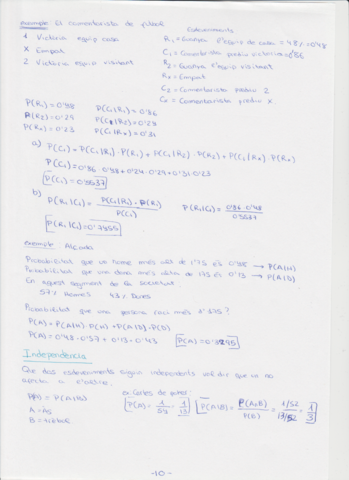 exemple: El comentarista de futbol
Esdeveniments
1 Victòria equip casa
R₁ = Guanya l'equip de casa = 48% = 0'48
X Empat
C₁ = Comentarista prediu victòria = 0'86
2 Victòria equip visitant
R₂ = Guanya l'equip visitant
Rₓ = Empat
C₂ = Comentarista prediu 2
Cₓ = Comentarista prediu X.
P(R₁) = 0'48 P(C₁|R₁) = 0'86
P(R₂) = 0'29 P(C₁|R₂) = 0'29
P(Rₓ) = 0'23 P(C₁|Rₓ) = 0'31
a) P(C₁) = P(C₁|R₁) · P(R₁) + P(C₁|R₂) · P(R₂) + P(C₁|Rₓ) · P(Rₓ)
P(C₁) = 0'86 · 0'48 + 0'24 · 0'29 + 0'31 · 0'23
P(C₁) = 0'5537
b) P(R₁|C₁) = P(C₁|R₁) · P(R₁) / P(C₁) P(R₁|C₁) = 0'86 · 0'48 / 0'5537
P(R₁|C₁) = 0'7455
exemple: Alçada
Probabilitat que un home més alt de 1'75 és 0'48 → P(A|H)
Probabilitat que una dona més alta de 1'75 és 0'13 → P(A|D)
En aquest segment de la societat
57% Homes 43% Dones
Probabilitat que una persona faci més 1'75?
P(A) = P(A|H) · P(H) + P(A|D) · P(D)
P(A) = 0'48 · 0'57 + 0'13 · 0'43 P(A) = 0'3295
Independència
Que dos esdeveniments siguin independents vol dir que un no
afecta a l'altre.
P(A) = P(A|B)
ex: Cartes de poker:
P(A) = 4/52 = 1/13 P(A|B) = P(A∩B) / P(B) = 1/52 / 13/52 = 1/13
A = As
-10-